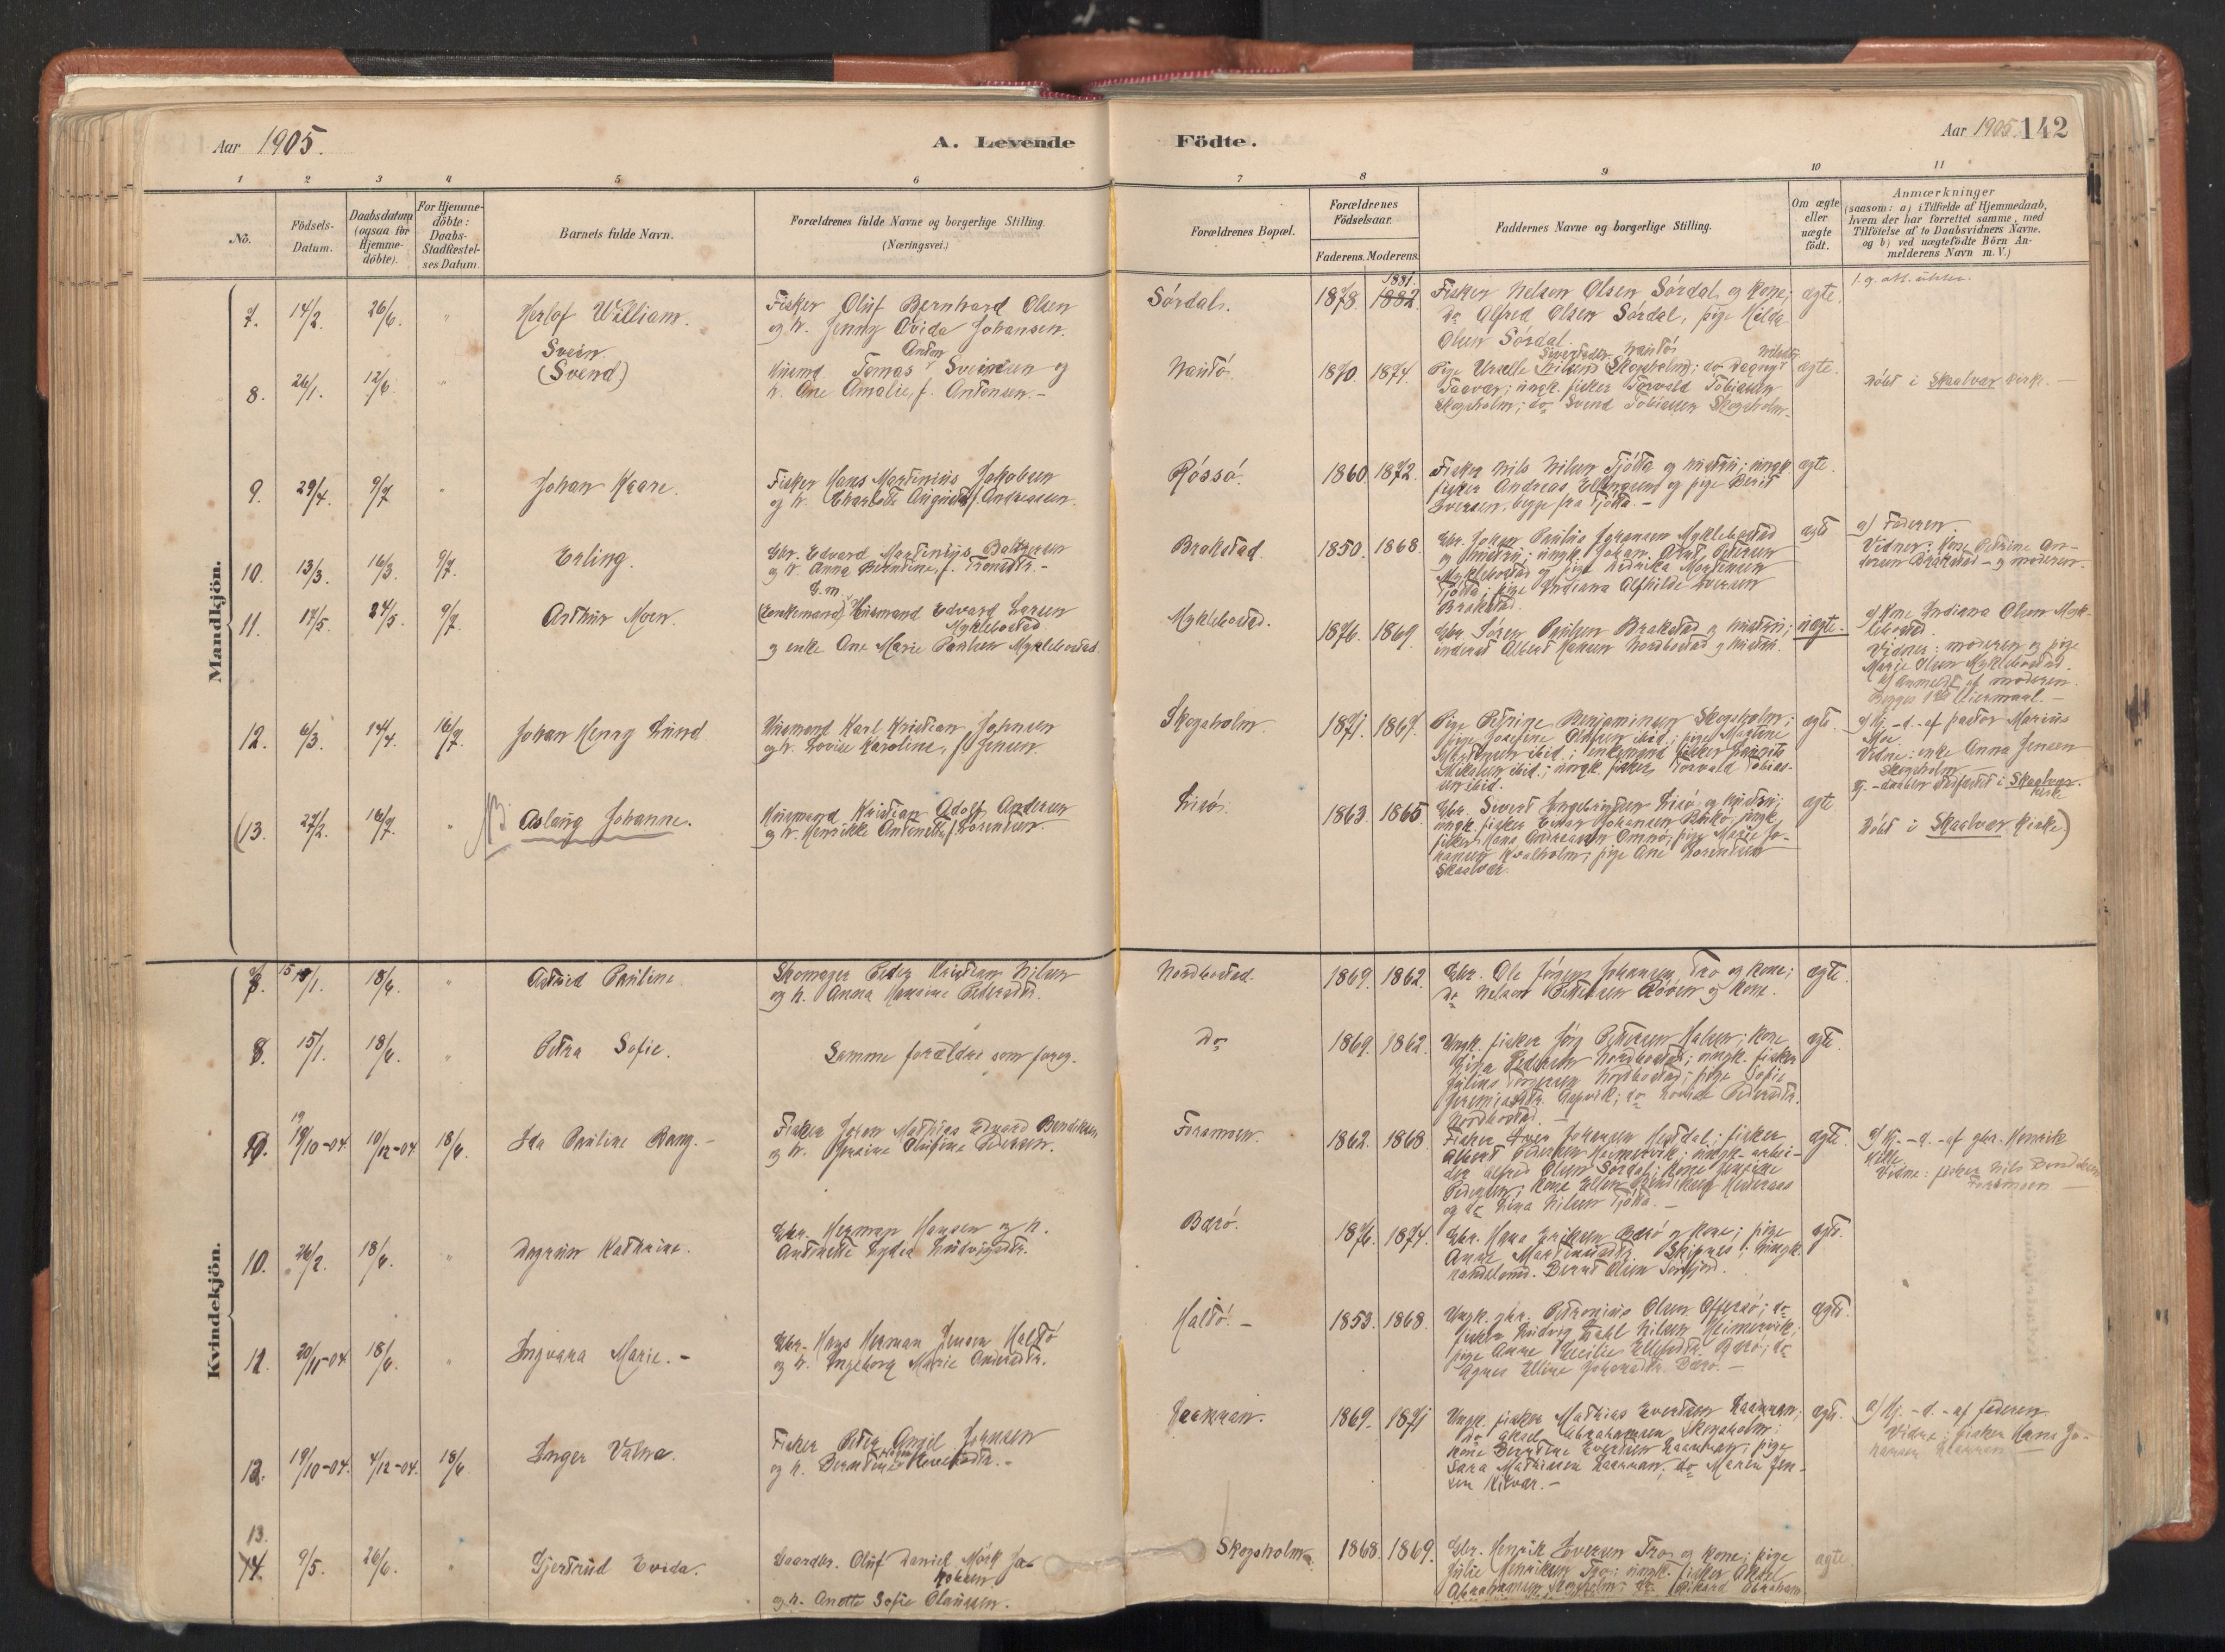 Aar 1905.
A. Levende
Födte.
Aar 1905. 142
1 2 3 4 5 6 7 8 9 10 11
No.
Födsels-
Datum.
Daabsdatum
(ogsaa for
Hjemme-
döbte).
For Hjemme-
döbte:
Daabs-
Stadfæstel-
ses Datum.
Barnets fulde Navn.
Forældrenes fulde Navne og borgerlige Stilling.
(Næringsvei.)
Forældrenes Bopæl.
Forældrenes
Födselsaar.
Faderens. Moderens.
Faddernes Navne og borgerlige Stilling.
Om ægte
eller
uægte
födt.
Anmærkninger
(saasom: a) i Tilfælde af Hjemmedaab,
hvem der har forrettet samme, med
Tilföielse af to Daabsvidners Navne.
og b) ved uægtefödte Börn An-
melderens Navn m. V.)
Mandkjön.
7. 14/2. 26/6. "
Herlof William.
Fisker Oluf Bernhard Olsen
og h. Jenny Ovida Johansen.
Sördal.
1878. 1881. 1882.
Fisker Nelson Olsen Sördal og kone;
do Alfred Olsen Sördal, pige Hilda
Olsen Sördal.
ægte.
8. 26/1. 12/6. "
Svein.
(Svend)
Anton
Husmd Tomas Svendsen og
h. Ane Amalie, f. Antonsen.-
Navtö.
1870. 1874.
Skogsholm; do Dagny
fisker Torvald Tobiassen
Skogsholm; do Svend Tobiassen Skogsholm.
ægte.
Döbt i Skaalvær Kirke.-
9. 29/4. 9/7. "
Johan Kaare.
Fisker Hans Martinius Jakobsen
og h. Charlotte Augusta f. Andreassen.
Rössö.
1860. 1872.
Fisker Nils Nilsen Tjötta og hustru; ungk.
fisker Andreas Ellingsen og pige Berit
Iversen, begge fra Tjötta.-
ægte.
10. 13/3. 16/3. 9/7.
Erling.
Gbr. Edvard Martinus Baltzersen
og h. Anna Berntine, f. Tomasdtr.-
Brakstad.
1850. 1868.
Gbr. Johan Paulus Johansen Myklebostad
og hustru; ungk. Johan Arnt Petersen
Myklebostad og pige Fredrikka Mortensen
Tjötta; pige Indiana Alfhilde Iversen
Brakstad.
ægte
a) Faderen.
Vidner: Kone Petrine An-
dersen Brakstad - og moderen.
11. 17/5. 24/5. 9/7.
Arthur Moen.
G.m.
(Enkemand) Husmand Edvard Larsen
Myklebostad
og enke Ane Marie Paulsen Myklebostad.
Myklebostad.
1876. 1869.
Gbr. Sören Paulsen Brakstad og hustru;
inderst Albert Hansen Nordbostad og hustru.
uægte.
a) Kone Indiana Olsen Myk-
lebostad.
Vidner: moderen og pige
Marie Olsen Myklebostad.
b) Anmeldt af moderen.
Begges 1ste Leiermaal.-
12. 6/3. 14/4. 16/7.
Johan Henry Lund
Husmand Karl Kristian Johnsen
og h. Lovise Karoline, f. Jensen.
Skogsholm.
1871. 1867.
Pige Petrine Benjaminsen Skogsholm;
pige Josefine Olsen ibid.; pige Martine
Mortensen ibid.; enkemand fisker Laurits
Mikalsen ibid.; ungk. fisker Torvald Tobias-
sen ibid.
ægte.
a) Hj.-d.- af pastor Marius
Moe.
Vidne: enke Anna Jensen
Skogsholm
Hj.-daaben stadfæstet i Skaalvær
Kirke
(13. 27/2. 16/7. "
NB Aslaug Johanne.
Husmand Kristian Adolf Andersen
og h. Henrikke Antonette f. Lorentsen.
Lisö.
1863. 1865.
Gbr. Sivert Ingebrigtsen Lisö og hustru;
ungk. fisker Einar Johansen ungk.
fisker Hans Andreassen Omnö; pige Marie Jo-
hansen Kvalholm; pige Ane Lorentsen
Skaalvær.
ægte
Döbt i Skaalvær Kirke.)
Kvindekjön.
7. 15/1. 18/6. "
Astrid Pauline.
Skomager Peder Kristian Nilsen
og h. Anna Hansine Pedersdtr.
Nordbostad.
1869. 1862.
Gbr. Ole Jörgen Johansen Tro og kone;
do Nelson Pettersen Röven og kone.
ægte.
8. 15/1. 18/6. "
Petra Sofie.
Samme forældre som foreg.
Do
1869. 1862.
Ungk. fisker Jörg Pettersen Halsen; kone
Gina Pedersen Nordbostad; ungk. fisker
Julius Torgersen Nordbostad; pige Sofie
Jeremiasdtr. do Pedersdtr.
Nordbostad.
ægte.
9. 19/10-04 10/12-04 18/6.
Ida Pauline Bang.-
Fisker Johan Mathias Edvard Bendiksen
og h. Jensine Olufine Pedersen.
Foramoen.
1862. 1868.
Fisker Iver Johansen fisker
Albert Pedersen Heimervik; ungk. arbei-
der Alfred Olsen Sördal; kone
Pedersen; kone Ellen Bendiksen
og do Lina Nilsen Tjötta.-
ægte.
a) Hj.-d.- af gbr. Henrik
Vidne: fisker Nils Bendiksen
Foramoen -
10. 26/2. 18/6. "
Dagrun Kathrine.
Gbr. Herman Hansen og h.
Antonette Lydia Ludvigsdtr.
Bærö.
1876. 1874.
Gbr. Hans Eriksen Bærö og kone; pige
Anne Martinusdtr. Skipnes; ungk.
handelsmd. Bernt Olsen
ægte.
11. 20/11-04 18/6. "
Ingvara Marie.-
Gbr. Hans Herman Jensen Haltö
og h. Ingeborg Marie Andersdtr.
Haltö.-
1853. 1868.
Ungk. gbr. Petronius Olsen Offersö; do
fisker Ludvig Dahl Nilsen Heimervik;
pige Anne Cecilie Bærö; do
Agnes Elline Johansdtr. Bærö.-
ægte.
12. 19/10-04. 4/12-04. 18/6.
Inger Valma.
Fisker Peter Angel Johnsen
og h. Berntine
Laanan.
1869. 1871
Ungk. fisker Mathias Evertsen Laanan;
do Aksel Abrahamsen Skogsholm;
kone Berntine Evertsen Laanan; pige
Sara Mathisen Laanan; do Maren Jen-
sen
ægte.
a) Hj.-d.- af faderen
Vidne: fisker Hans Jo-
hansen Laanan -
13.
14. 9/5. 26/6. "
Gjertrud Evida.
Gaardbr. Oluf Daniel Mörk Ja-
kobsen
og h. Anette Sofie Olaussen.
Skogsholm.
1868. 1869.
Gbr. Henrik Iversen Tro og kone; pige
Julie Henriksen Tro; ungk. fisker Aksel
Abrahamsen Skogsholm; do Rikard Abraham-
ægte.